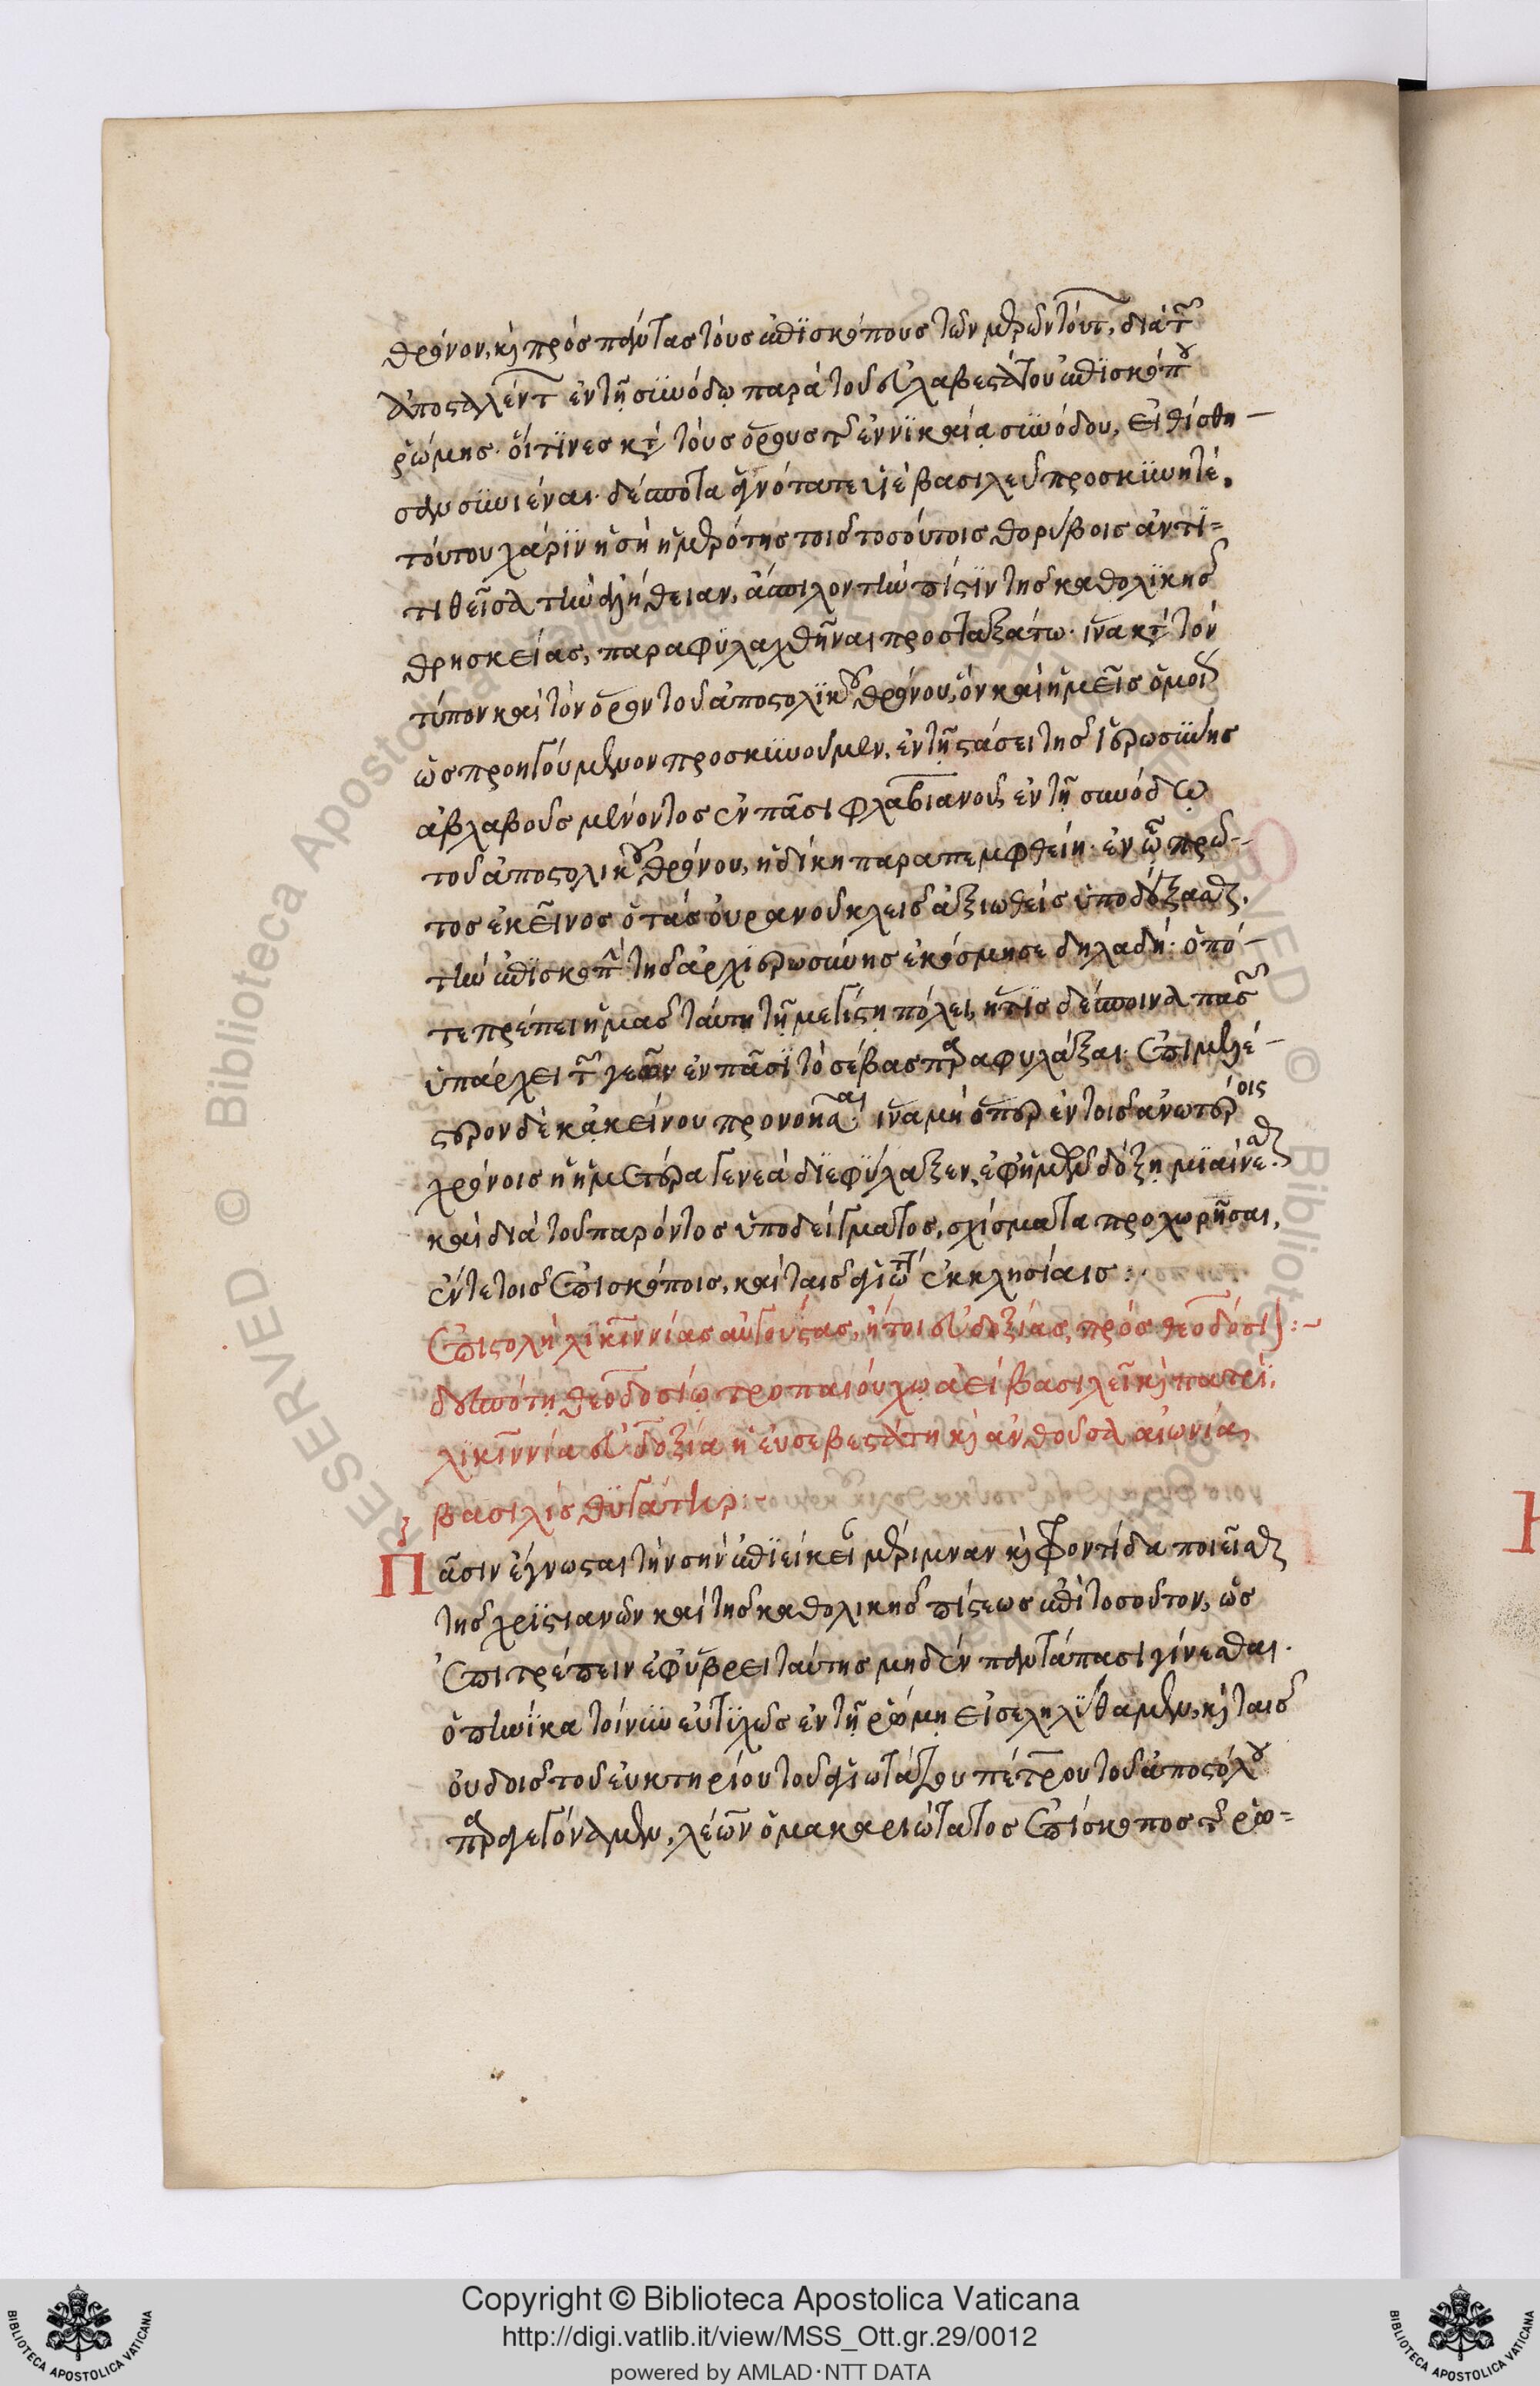 θρόνον, καὶ πρὸς πάντας τοὺς ἐπϊσκόπους τῶν μερῶν τούτ, διὰ τ
ἀποσταλέντ ἐν τῇ συνόδῳ παρὰ τοῦ εὐλαβεστάτου ἐπϊσκόπου
ῥώμης. οἵτϊνες κατὰ τοὺς ὅρους τῆς ἐν νϊκαίᾳ συνόδου, εἰθίσθη-
σαν συνιέναι. δέσποτα
προσκυνητέ.
τούτου χάρϊν ἡ σὴ ἡμερότης τοῖς τοσούτοις θορύβοις ἀντϊ=
τιθεῖσα τὴν ἀλήθειαν, ἄσπιλον τὴν πίστϊν τῆς καθολϊκῆς
θρησκείας, παραφϋλαχθῆναι προσταξάτω. ἵνα κατὰ τὸν
τύπον καὶ τὸν ὅρον τοῦ ἀποστολϊκοῦ θρόνου, ὃν καὶ ἡμεῖς ὁμοί
ὡς προηγούμενον προσκυνοῦμεν, ἐν τῇ στάσει τῆς ἱερωσύνης
ἀβλαβοῦς μένοντος ἐν πᾶσι φλαβιανοῦ, ἐν τῇ συνόδῳ
τοῦ ἀποστολικοῦ θρόνου, ἡ δίκη παραπεμφθείη. ἐν ᾧ πρῶ-
τος ἐκεῖνος ὁ τὰς οὐρανοῦ κλεῖς ἀξιωθεὶς ὑποδέξασθαι,
τὴν ἐπϊσκοπὴν τῆς ἀρχιερωσύνης ἐκόσμησε δηλαδή. ὁπό-
τε πρέπει ἡμᾶς ταύτῃ τῇ μεγίστῃ πόλει, ἥτϊς δέσποινα πασῶν
ὑπάρχει τῶν γεῶν ἐν πᾶσϊ τὸ σέβας παραφυλάξαι. ἐπιμελέ-
στερον δὲ κἀκείνου προνοῆσαι ἵνα μὴ ὅπερ ἐν τοῖς ἀνωτέροις
χρόνοις ἡ ἡμετέρα γενεὰ διεφύλαξεν, ἐφ' ἡμῶν δόξῃ μϊαίνεσθαι
καὶ διὰ τοῦ παρόντος ὑποδείγματος, σχίσματα προχωρῆσαι,
ἔν τε τοῖς ἐπισκόποις, καὶ ταῖς ἁγιωτ ἐκκλησίαις:
ἐπιστολὴ λικιννίας αὐγούστας, ἤτοι εὐδοξίας, πρὸς θεοδόσι:~
δεσπότῃ θεοδοσίῳ τροπαιούχῳ ἀεὶ βασιλεῖ καὶ πατρϊ,
λϊκιννία εὐδοξία ἡ εὐσεβεστάτη καὶ ἀνθοῦσα αἰωνία,
βασιλὶς θϋγάτηρ:~
Πᾶσιν ἔγνωσται τὴν σὴν ἐπϊείκει μέριμναν καὶ φροντίδα ποιεῖσθαι
τῆς χρϊστιανῶν καὶ τῆς καθολικῆς πίστεως ἐπὶ τοσοῦτον, ὡς
ἐπιτρέπειν ἐφ' ὕβρει ταύτης μηδὲν παντάπασι γίνεσθαι.
ὁπηνίκα τοίνυν εὐτϋχῶς ἐν τῇ ῥώμῃ εἰσεληλύθαμεν, καὶ ταῖς
οὐδοῖς τοῦ εὐκτηρίου τοῦ ἁγιωτάτου πέτρου τοῦ ἀποστόλου
παραγεγόναμεν, λέων ὁ μακαριώτατος ἐπίσκοπος τῆς ῥώ=
Copyright © Biblioteca Apostolica Vaticana
http://digi.vatlib.it/view/MSS_Ott.gr.29/0012
powered by AMLAD·NTT DATA